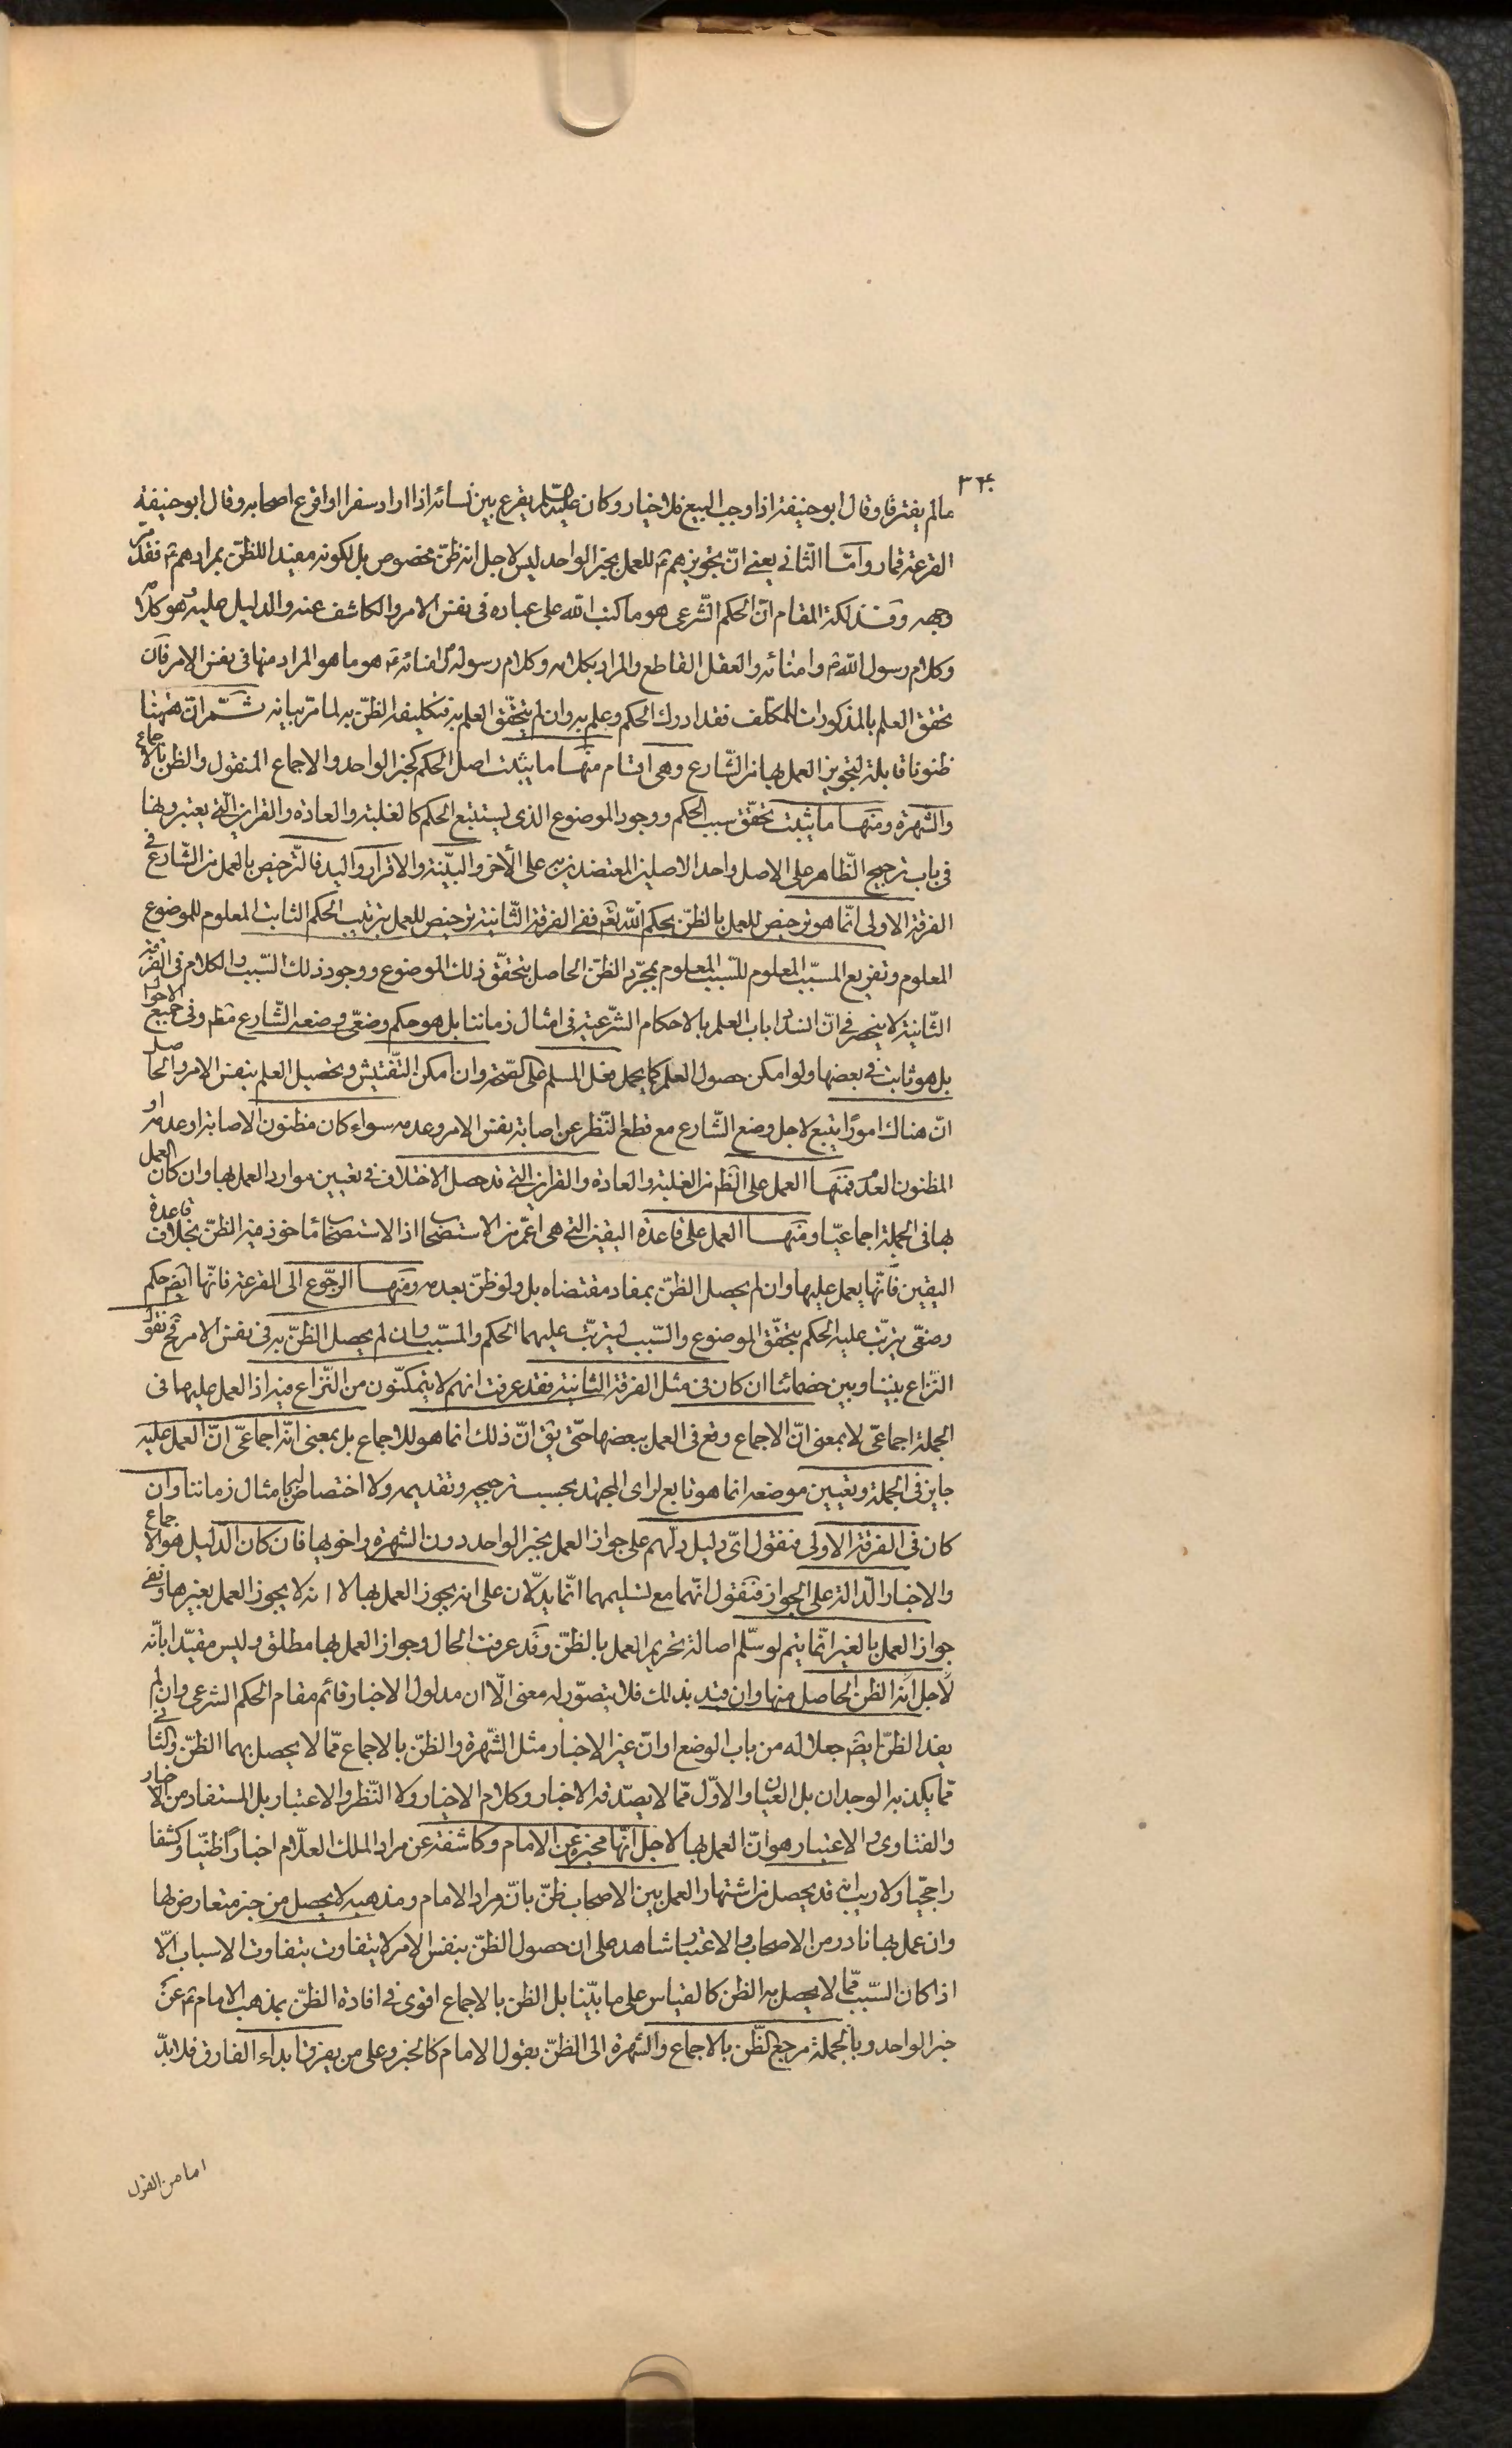 ٣٢٠
مالم يفترقا وقال ابو حنيفة اذا وجب البيع فلا خيار وكان عليه السلم يقرع بين نسائه اذا اراد سفرا واقرع اصحابه وقال ابو حنيفة
القرعة قمار وامّا الثّانى يعنى انّ تجويزهم ع للعمل بخبر الواحد ليس لاجل انه ظنّ مخصوص بل لكونه مفيدا للظنّ بمرادهم ع فقد مرّ
وجهه وفذلكة المقام انّ الحكم الشّرعى هو ما كتب الله على عباده فى نفس الامر والكاشف عنه والدليل عليه هو كلامه
وكلام رسول اللّه ص وامنائه والعقل القاطع والمراد بكلامه وكلام رسوله ص وامنائه ع هو ما هو المراد منها فى نفس الامر فان
تحقق العلم بالمذكورات للمكلف فقد ادرك الحكم وعلم به وان لم يتحقّق العلم به فتكليفه الظنّ به لما مرّ بيانه ثمّ انّ ههنا
ظنونا قابلة لتجويز العمل بها من الشّارع وهى اقسام منها ما يثبت اصل الحكم كخبر الواحد والاجماع المنقول والظن بالاجماع
والشهرة ومنها ما يثبت تحقّق سبب الحكم ووجود الموضوع الذى يستتبع الحكم كالغلبة والعادة والقراين الّتى يعتبرونها
فى باب ترجيح الظّاهر على الاصل واحد الاصلين المعتضد به على الأخر والبيّنة والاقرار واليد فالترخيص بالعمل من الشّارع فى
الفرقة الاولى انّما هو ترخيص للعمل بالظنّ بحكم اللّه تعم ففى الفرقة الثّانية ترخيص للعمل بترتيب الحكم الثابت المعلوم للموضوع
المعلوم وتفريع المسبّب المعلوم للسّبب المعلوم بمجرّد الظنّ الحاصل بتحقّق ذلك الموضوع ووجود ذلك السّبب والكلام فى الفرقة
الثّانية لا ينحصر فى انّ انسداد باب العلم بالاحكام الشّرعية فى امثال زماننا بل هو حكم وضعّى وضعه الشّارع مط وفى جميع الاحوال
بل هو ثابت فى بعضها ولو امكن حصول العلم كما يحمل فعل المسلم على الصّحة وان امكن التّفتيش وتحصيل العلم بنفس الامر والحاصل
انّ هناك امورًا يتبع لاجل وضع الشّارع مع قطع النّظر عن اصابة نفس الامر وعدمه سواء كان مظنون الاصابة او عدمه او
المظنون العدم فمنها العمل على الظّ من الغلبة والعادة والقراين التى قد حصل الاختلاف فى تعيين موارد العمل بها وان كان العمل
بها فى الجملة اجماعيّا ومنها العمل على قاعدة اليقين التى هى اعّم من الاستصحاب اذ الاستصحاب مأخوذ فيه الظنّ بخلاف قاعدة
اليقين فانّها يعمل عليها وان لم يحصل الظنّ بمفاد مقتضاه بل ولو ظنّ بعدمه ومنها الرجّوع الى القرعة فانّها ايضم حكم
وضعّى يترتّب عليه الحكم بتحقّق الموضوع والسّبب ليترتّب عليهما الحكم والمسبّب وان لم يحصل الظنّ به فى نفس الامر فح نقول
النّزاع بيننا وبين خصمائنا ان كان فى مثل الفرقة الثانية فقد عرفت انهم لا يتمكنّون من النّزاع فيه اذ العمل عليها فى
الجملة اجماعّى لا بمعنى انّ الاجماع وقع فى العمل ببعضها حتّى يق انّ ذلك انما هو للاجماع بل بمعنى انّه اجماعّى انّ العمل عليه
جايز فى الجملة وتعيين موضعه انما هو تابع لراى المجتهد بحسب ترجيحه وتقديمه ولا اختصاص لها بامثال زماننا وان
كان فى الفرقة الاولى فنقول اىّ دليل دلّهم على جواز العمل بخبر الواحد دون الشهرة واخويها فان كان الدّليل هو الاجماع
والاخبار الدّالة على الجواز فنقول انّهما مع تسليمهما انّما يدلّان على انه يجوز العمل بها لا انه لا يجوز العمل بغيرها ونفى
جواز العمل بالغير انّما يتم لو سلّم اصالة تحريم العمل بالظنّ وقد عرفت الحال وجواز العمل بها مطلق وليس مقيّدا بانّه
لاجل انه الظن الحاصل منها وان قيد بذلك فلا يتصوّر له معنى الّا ان مدلول الاخبار قائم مقام الحكم الشرعى وان لم
يفد الظنّ ايضم جعلا له من باب الوضع او انّ غير الاخبار مثل الشّهرة والظنّ بالاجماع ممّا لا يحصل بهما الظنّ والثانى
ممّا يكذبه الوجدان بل العيان والاوّل ممّا لا يصدّقه الاخبار وكلام الاخيار ولا النّظر والاعتبار بل المستفاد من الاخبار
والفتاوى والاعتبار هو انّ العمل بها لاجل انّها مخبرة عن الامام وكاشفة عن مراد الملك العلّام اخبارًا ظنّيا وكشفا
راجحيّا ولا ريب انّه قد يحصل من اشتهار العمل بين الاصحاب ظنّ بانّه مراد الامام ومذهبه لا يحصل من خبر متعارض لها
وان عمل بها نادر من الاصحاب والاعتبار شاهد على ان حصول الظنّ بنفس الامر لا يتفاوت بتفاوت الاسباب الّا
اذا كان السّبب ممّا لا يحصل به الظن كالقياس على ما بيّنا بل الظن بالاجماع اقوى فى افادة الظنّ بمذهب الامام ع عن
خبر الواحد وبالجملة مرجع الظّن بالاجماع والشهرة الى الظنّ بقول الامام كالخبر وعلى من يفرق ابداء الفارق فلا بدّ
اما من القول